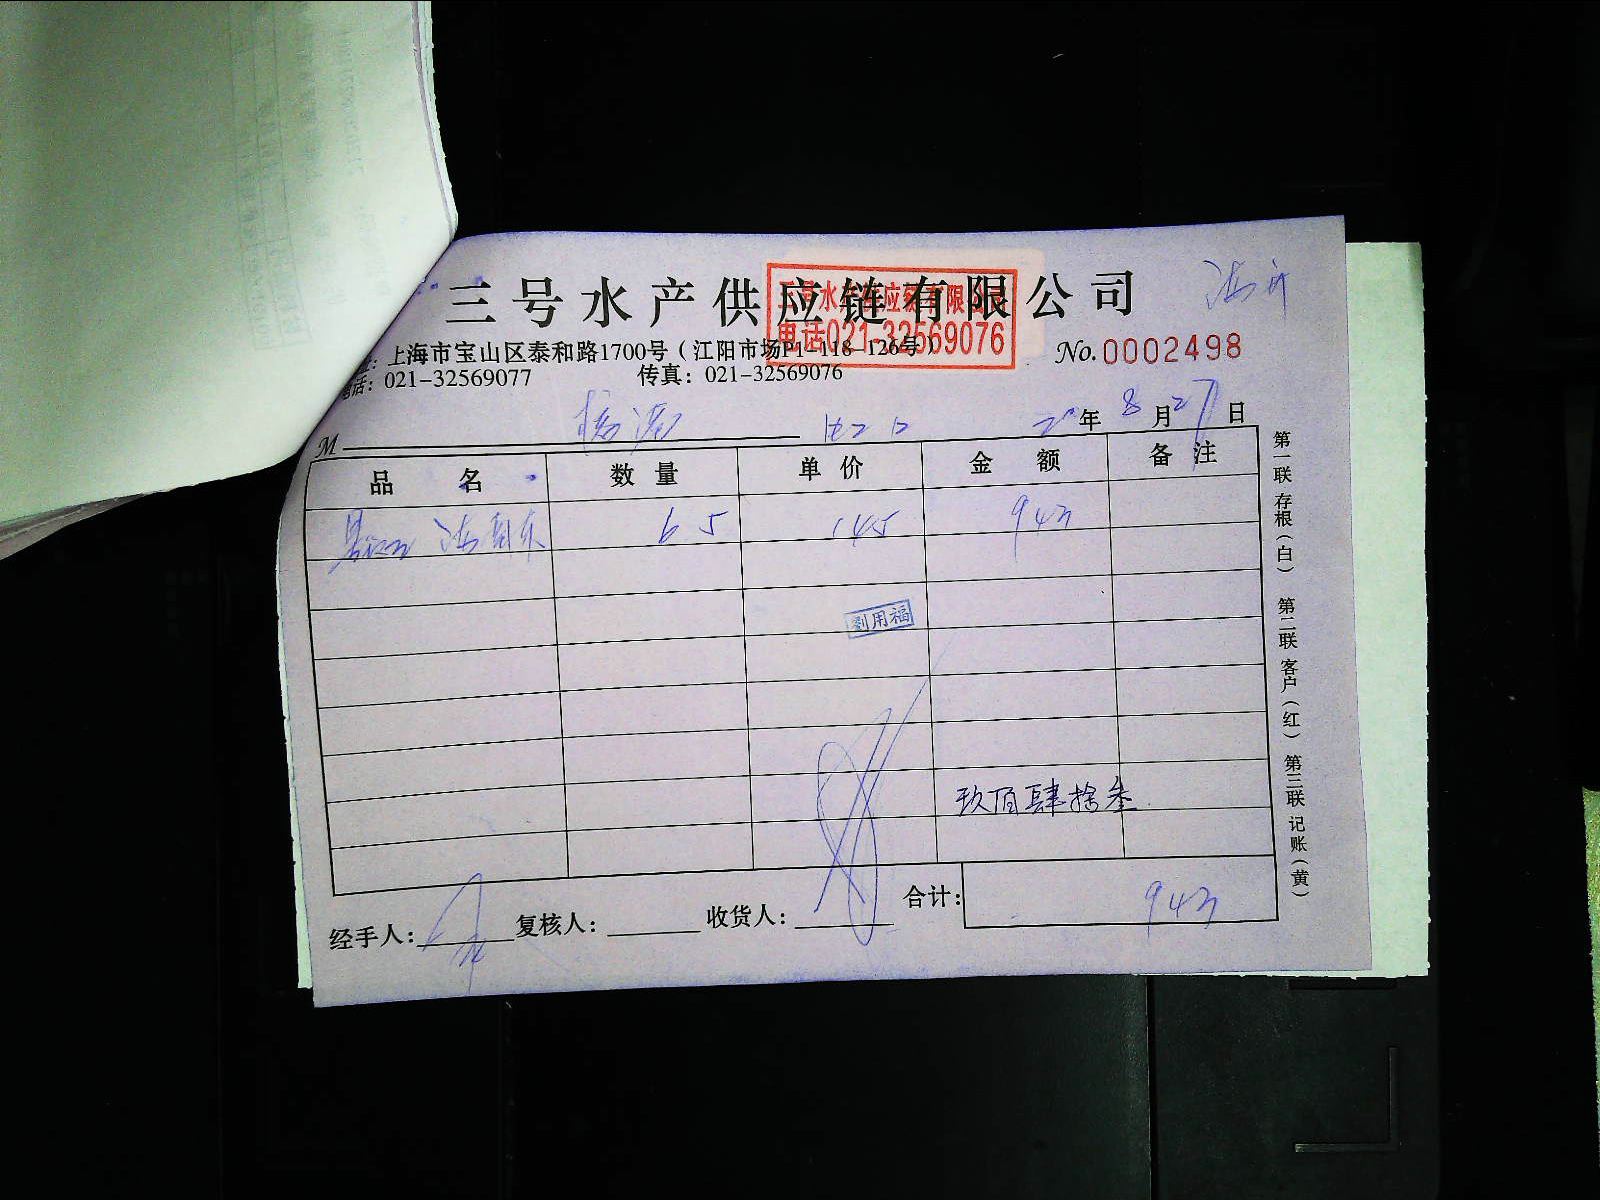 三号水产供应链有限公司
三号水产供应链有限公司
电话021-32569076
上海市宝山区泰和路1700号（江阳市场P1-118-126号）
No.0002498
话：021-32569077 传真：021-32569076
M 年8月27日
品名 数量 单价 金额 备注
65 145 943
刘用福
玖佰肆拾叁
合计：943
经手人： 复核人： 收货人：
第一联 存根（白） 第二联 客户（红） 第三联 记账（黄）